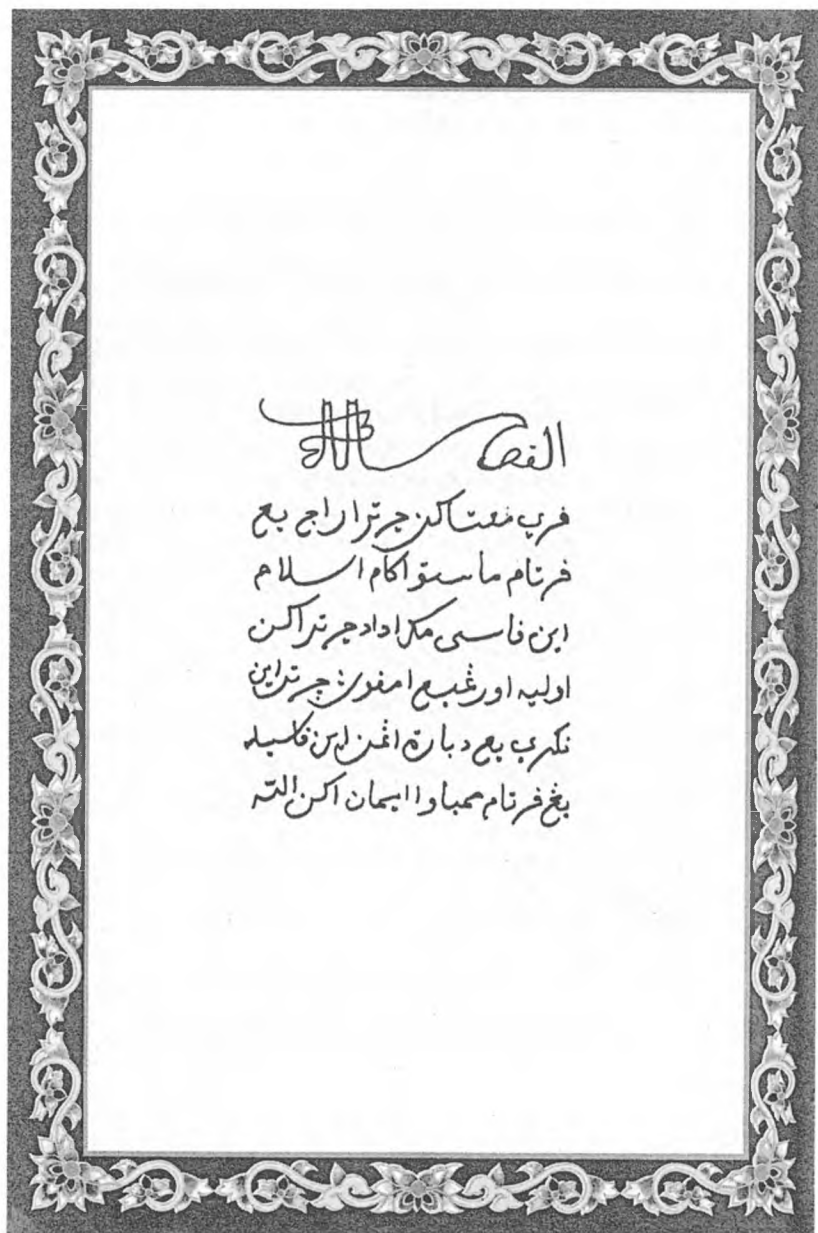 القصه
فري مڠتاكن چرترا راج يڠ
فرتام ماسق اكام اسلام
اين فاسي مك اداد چرتراكن
اوليه اورڠ يڠ امفون چرترا اين
نكري يڠ دباوه اڠن اين فاسيله
يڠ فرتام ممباوا ايمان اكن الله